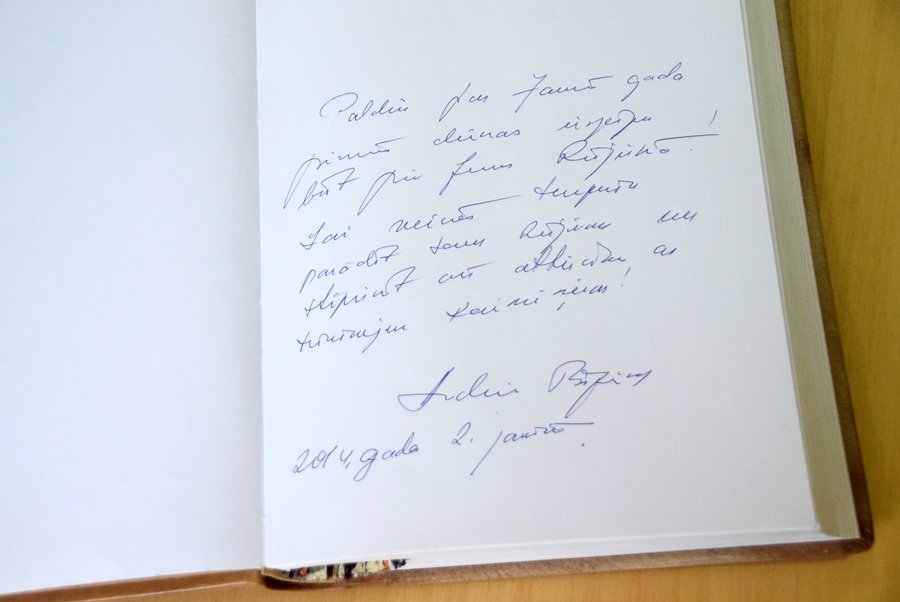 Paldies par Jaunā gada
pirmās dienas iespēju
būt pie Jums Rūjienā!
Lai veicas
parādīt savu Rūjienu un
stiprināt arī attiecības ar
tuvākajiem kaimiņiem!
Andris Bērziņš
2014. gada 2. janvārī.